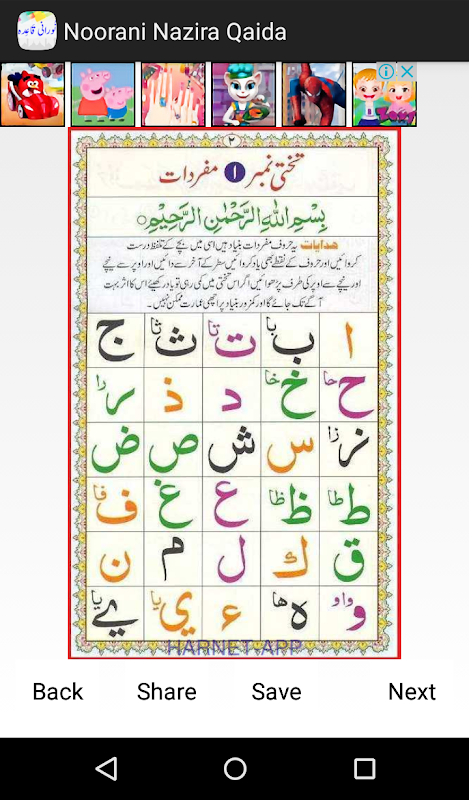 نورانی قاعدہ
Noorani Nazira Qaida
۲
تختی نمبر ۱ مفردات
بِسْمِ اللهِ الرَّحْمٰنِ الرَّحِيْمِ
ھدایات یہ حروف مفردات بنیاد ہیں اسی میں بچے کے تلفظ درست
کروائیں اور حروف کے نقطے بھی یاد کروائیں سطر کے آخر سے دائیں اور اوپر سے نیچے
اور نیچے سے اوپر کی طرف پڑھوائیں اگر اس تختی میں کمی رہی تو یاد رکھیئے اس کا اثر بہت
آگے تک جائے گا اور کمزور بنیاد پر اچھی عمارت ممکن نہیں۔
ا ب با ت تا ث ثا ج
ح حا خ خا د ذ ر را
ز زا س ش ص ض
ط طا ظ ظا ع غ ف فا
ق ك ل م ن
و واو ه ها ء ي یا ے یا
HARNET APP
Back Share Save Next